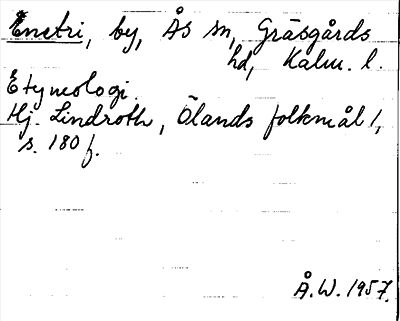 Enetri, by, Ås sn, Gräsgårds
hd, Kalm. l.
Etymologi.
Hj. Lindroth, Ölands folkmål 1,
s. 180 f.
Å.W. 1957.